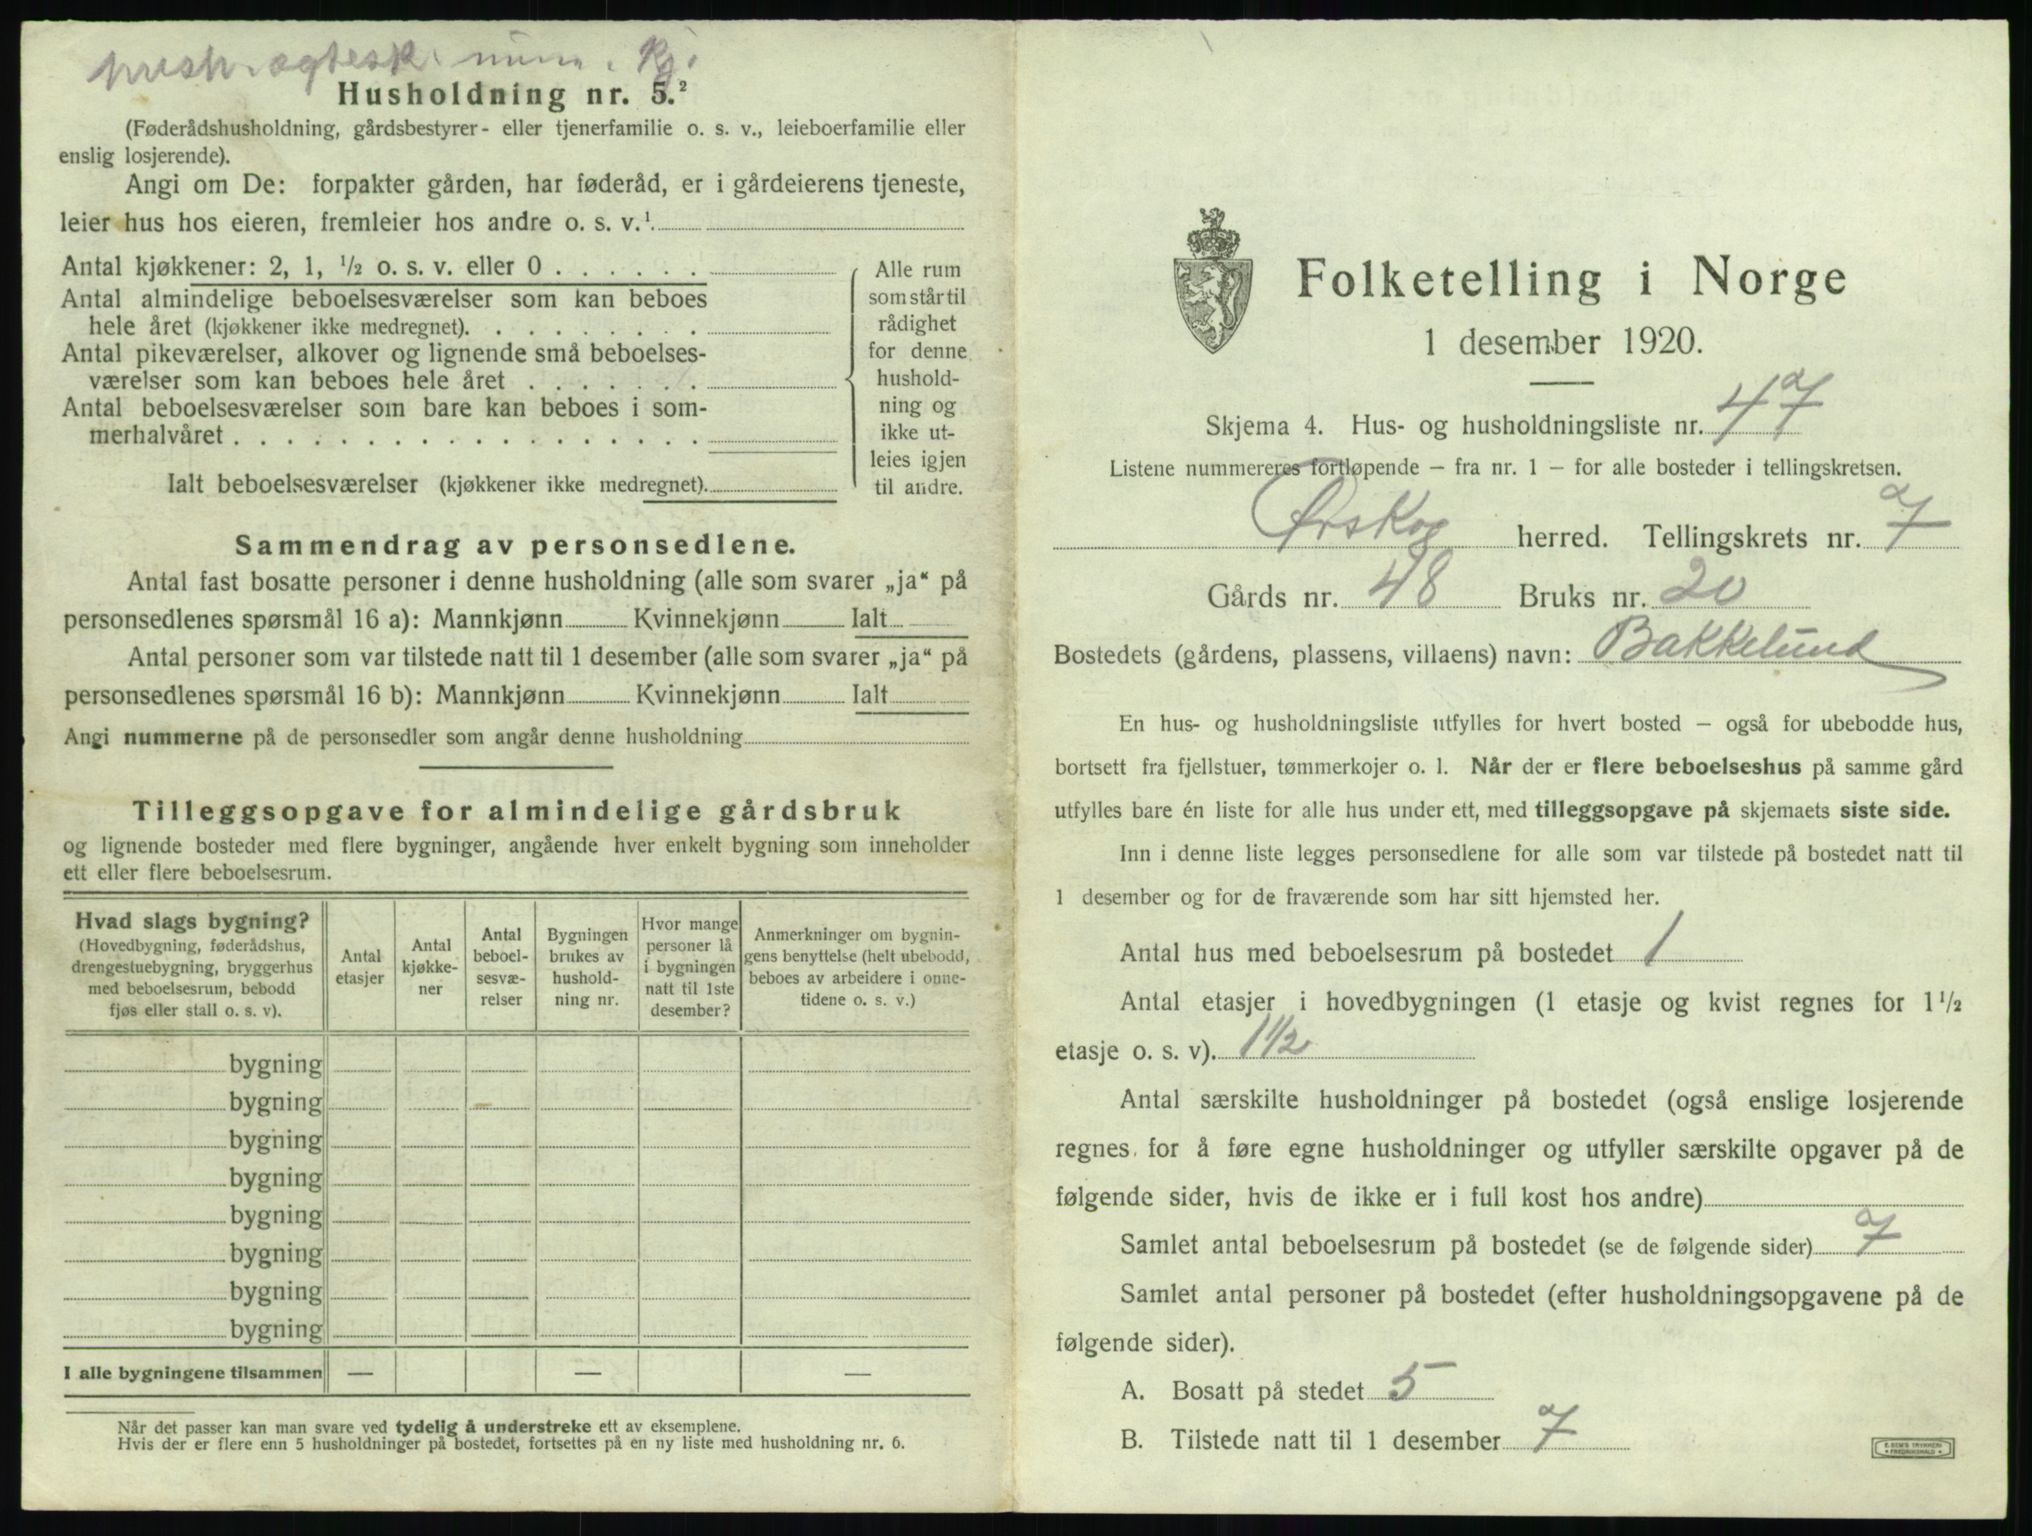 Husholdning nr. 5.²
(Føderådshusholdning, gårdsbestyrer- eller tjenerfamilie o. s. v., leieboerfamilie eller
enslig losjerende).
Angi om De: forpakter gården, har føderåd, er i gårdeierens tjeneste,
leier hus hos eieren, fremleier hos andre o. s. v.¹
Antal kjøkkener: 2, 1, ½ o. s. v. eller 0 . . . . . .
Antal almindelige beboelsesværelser som kan beboes
hele året (kjøkkener ikke medregnet). . . . . . . . .
Antal pikeværelser, alkover og lignende små beboelses-
værelser som kan beboes hele året . . . . . . .
Antal beboelsesværelser som bare kan beboes i som-
merhalvåret . . . . . . . . . . . . . . . . . .
Ialt beboelsesværelser (kjøkkener ikke medregnet).
Alle rum
som står til
rådighet
for denne
hushold-
ning og
ikke ut-
leies igjen
til andre.
Sammendrag av personsedlene.
Antal fast bosatte personer i denne husholdning (alle som svarer „ja“ på
personsedlenes spørsmål 16 a): Mannkjønn Kvinnekjønn Ialt
Antal personer som var tilstede natt til 1 desember (alle som svarer „ja“ på
personsedlenes spørsmål 16 b): Mannkjønn Kvinnekjønn Ialt
Angi nummerne på de personsedler som angår denne husholdning
Tilleggsopgave for almindelige gårdsbruk
og lignende bosteder med flere bygninger, angående hver enkelt bygning som inneholder
ett eller flere beboelsesrum.
Hvad slags bygning?
(Hovedbygning, føderådshus,
drengestuebygning, bryggerhus
med beboelsesrum, bebodd
fjøs eller stall o. s. v).
Antal
etasjer
Antal
kjøkke-
ner
Antal
beboel-
sesvæ-
relser
Bygningen
brukes av
hushold-
ning nr.
Hvor mange
personer lå
i bygningen
natt til 1ste
desember?
Anmerkninger om bygnin-
gens benyttelse (helt ubebodd,
beboes av arbeidere i onne-
tidene o. s. v.)
bygning
bygning
bygning
bygning
bygning
bygning
bygning
bygning
I alle bygningene tilsammen — — —
Når det passer kan man svare ved tydelig å understreke ett av eksemplene.
Hvis der er flere enn 5 husholdninger på bostedet, fortsettes på en ny liste med husholdning nr. 6.
Folketelling i Norge
1 desember 1920.
Skjema 4. Hus- og husholdningsliste nr. 47
Listene nummereres fortløpende – fra nr. 1 – for alle bosteder i tellingskretsen.
Ørskog herred. Tellingskrets nr. 7
Gårds nr. 48 Bruks nr. 20
Bostedets (gårdens, plassens, villaens) navn: Bakkelund
En hus- og husholdningsliste utfylles for hvert bosted – også for ubebodde hus,
bortsett fra fjellstuer, tømmerkojer o. l. Når der er flere beboelseshus på samme gård
utfylles bare én liste for alle hus under ett, med tilleggsopgave på skjemaets siste side.
Inn i denne liste legges personsedlene for alle som var tilstede på bostedet natt til
1 desember og for de fraværende som har sitt hjemsted her.
Antal hus med beboelsesrum på bostedet 1
Antal etasjer i hovedbygningen (1 etasje og kvist regnes for 1½
etasje o. s. v). 1½
Antal særskilte husholdninger på bostedet (også enslige losjerende
regnes for å føre egne husholdninger og utfyller særskilte opgaver på de
følgende sider, hvis de ikke er i full kost hos andre)
Samlet antal beboelsesrum på bostedet (se de følgende sider) 7
Samlet antal personer på bostedet (efter husholdningsopgavene på de
følgende sider).
A. Bosatt på stedet 5
B. Tilstede natt til 1 desember 7
E. SEM'S TRYKKERI
FREDRIKSHALD